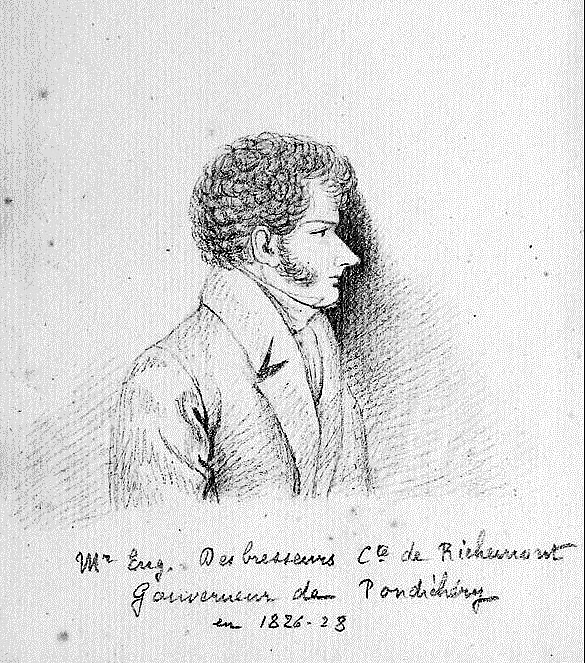 Mr Eug. Desbresseurs Cte de Richemont
Gouverneur de Pondichéry
en 1826-28